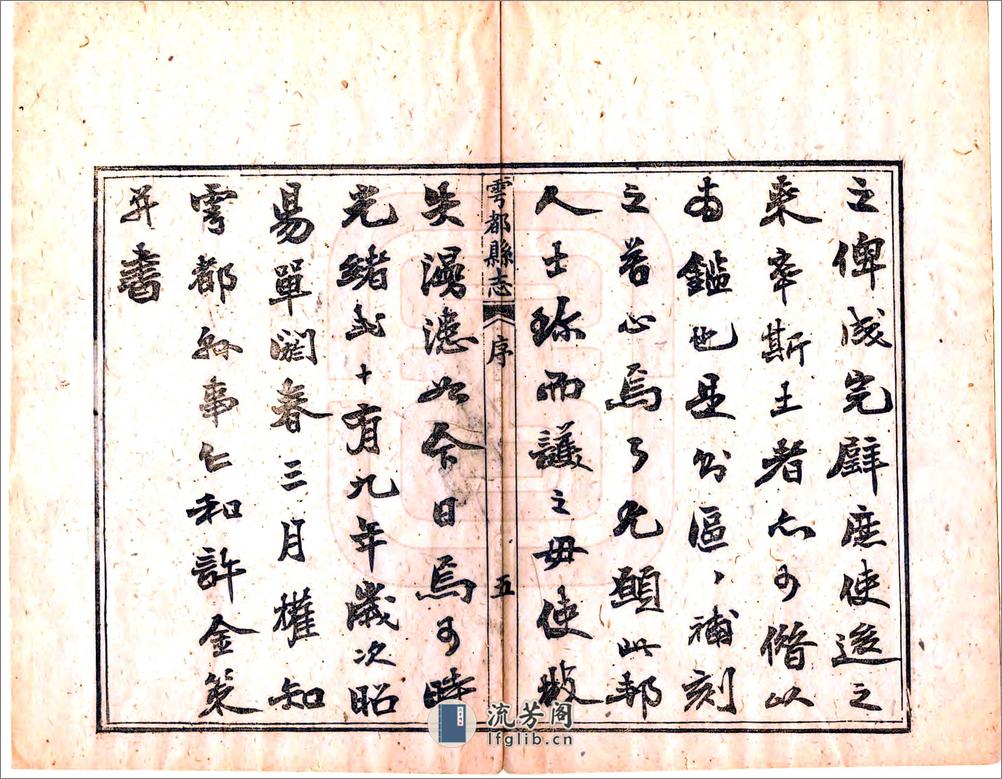 之俾成完璧庶使後之
來宰斯土者亦可借以
為鑑也是則區、補刻
之苦心焉耳尤願此邦
人士珍而護之毋使散
雩都縣志 序 五
失漫漶如今日焉可時
光緒二十有九年歲次昭
昜單閼春三月權知
雩都縣事仁和許金策
并書
流芳阁
lfglib.cn